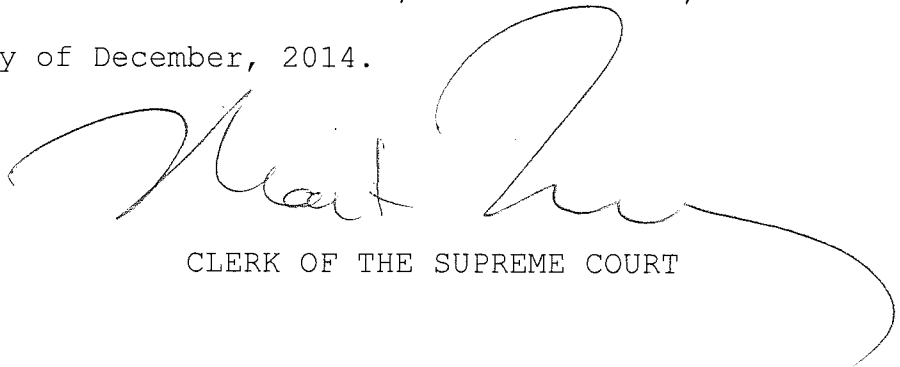 y of December, 2014.
CLERK OF THE SUPREME COURT